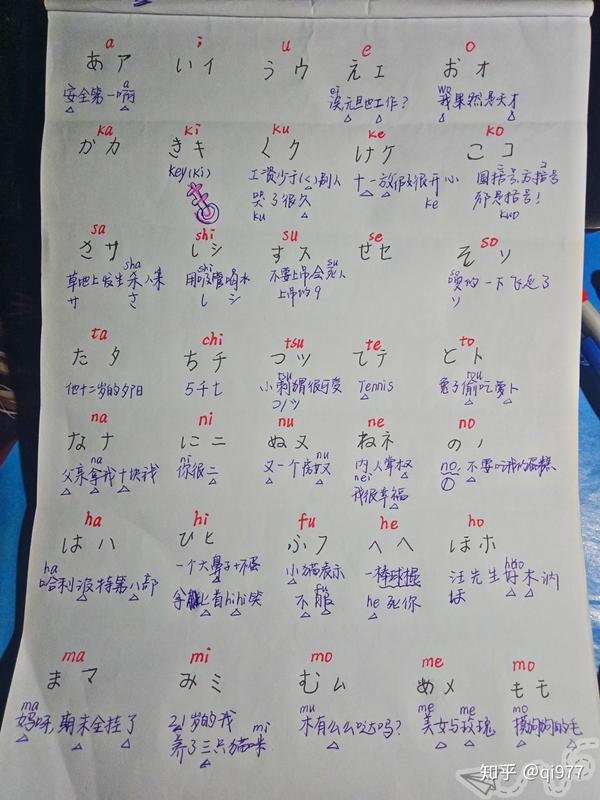 a i u e o
あア いイ うウ えエ おオ
安全第一啊 a
ei 没元旦也工作?
wo 我果然是天才
ka ki ku ke ko
かカ きキ くク けケ こコ
key(ki)
工资少于(く)别人
哭了很久
ku
十一放假很开心
ke
圆括号,方括号
那是括号!
kuo
sa shi su se so
さサ しシ すス せセ そソ
草地上发生杀人案
sha
サ さ
用吸管喝水
shi
し シ
不要上吊会死人
su
上吊的9
嗖的一下飞走了
ソ
ta chi tsu te to
たタ ちチ つツ てテ とト
他十二岁的夕阳
5千七
小刺猬很可爱
つ/ツ
Tennis
兔子偷吃萝卜
tou
na ni nu ne no
なナ にニ ぬヌ ねネ のノ
父亲拿我十块钱
na
你很二
ni
又一个房奴
nu
内人掌权
nei
我很幸福
no,不要吃我的蛋糕
①
ha hi fu he ho
はハ ひヒ ふフ へヘ ほホ
ha
哈利波特第八部
一个大鼻子坏蛋
拿着匕首hihi笑
小猫表示
不服
fu
一棒球棍
he死你
汪先生好木讷
hao
ほ
ma mi mo me mo
まマ みミ むム めメ もモ
ma
妈呀,期末全挂了
21岁的我
养了三只猫咪
mi
mu
木有么么哒吗?
me me
美女与玫瑰
mo
摸狗狗的毛
知乎 @qi977